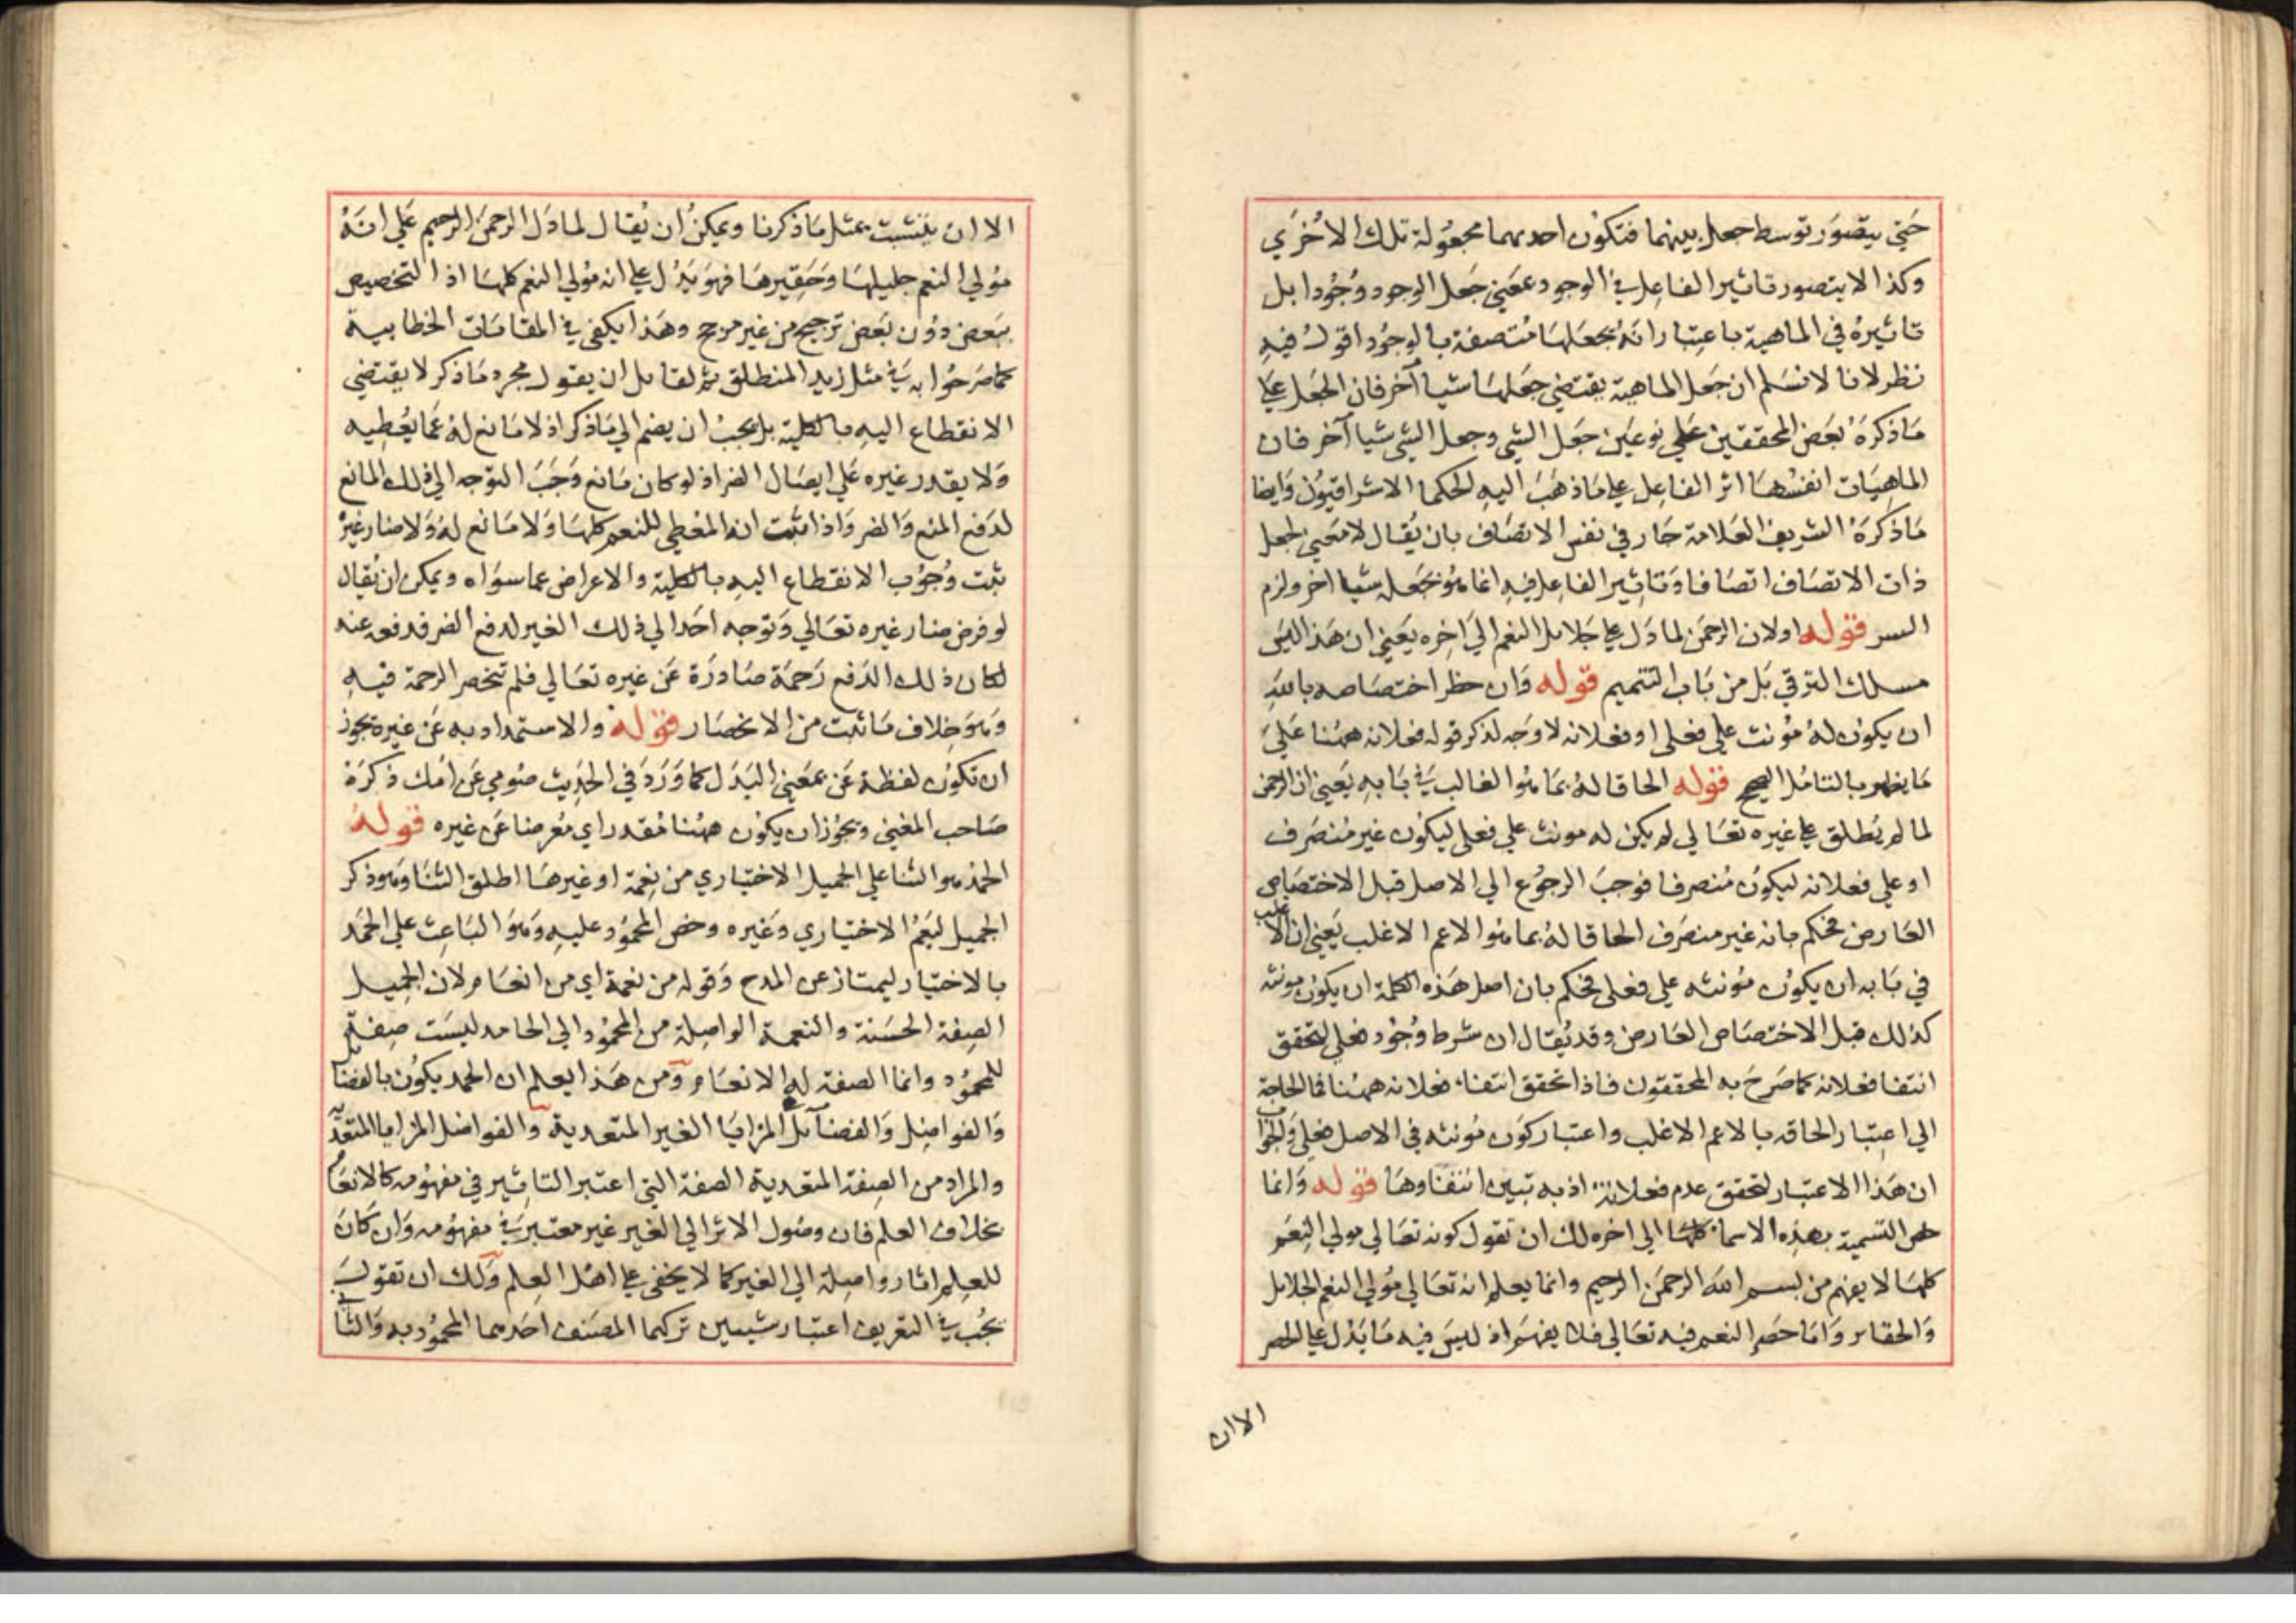 حتي يتصور توسط جعل بينهما فتكون احديهما مجعولة تلك الاخري
وكذا لا يتصور تاثير الفاعل في الوجود بمعني جعل الوجود وجودا بل
تاثيره في الماهية باعتبار انه يجعلها متصفة بالوجود اقول فيه
نظر لانا لا نسلم ان جعل الماهية يقتضي جعلها شيا آخر فان الجعل علي
ماذكره بعض المحققين علي نوعين جعل الشي وجعل الشي شيا آخر فان
الماهيات انفسها اثر الفاعل علي ماذهب اليه الحكما الاشراقيون وايضا
ماذكره الشريف العلامة جار في نفس الاتصاف بان يقال لا معني لجعل
ذات الاتصاف اتصافا وتاثير الفاعل فيه انما هو بجعله شيا اخر ولزم
التسر قوله اولان الرحمن لما دل علي جلايل النعم الي اخره يعني ان هذا ليس
مسلك الترقي بل من باب التتميم قوله وان حظر اختصاصه بالله
ان يكون له مؤنث علي فعلي او فعلانه لا وجه لذكر قوله فعلانه ههنا علي
ما يظهر بالتامل الصحيح قوله الحاقا له بما هو الغالب في بابه يعني ان الرحمن
لما لم يطلق علي غيره تعالي لم يكن له مونث علي فعلي ليكون غير منصرف
او علي فعلانه ليكون منصرفا فوجب الرجوع الي الاصل قبل الاختصاص
العارض فحكم بانه غير منصرف الحاقا له بما هو الاعم الاغلب يعني ان الاغلب
في بابه ان يكون مؤنثه علي فعلي فحكم بان اصل هذه الكلمة ان يكون مونثه
كذلك قبل الاختصاص العارض وقد يقال ان شرط وجود فعلي لتحقق
انتفا فعلانه كما صرح به المحققون فاذا تحقق انتفاء فعلانه ههنا فما الحاجة
الي اعتبار الحاقه بالاعم الاغلب واعتبار كون مؤنثه في الاصل فعلي والجواب
ان هذا الاعتبار لتحقق عدم فعلانة اذ به تبين انتفاوها قوله وانما
خص التسمية بهذه الاسماء كلها الي اخره لك ان تقول كونه تعالي مولي النعم
كلها لا يفهم من بسم الله الرحمن الرحيم وانما يعلم انه تعالي مولي النعم الجلايل
والحقاير واما حصر النعم فيه تعالي فلا يفهم اذ ليس فيه ما يدل علي الحصر
الا ان
الا ان يتشبث بمثل ماذكرنا ويمكن ان يقال لما دل الرحمن الرحيم علي انه
مولي النعم جليلها وحقيرها فهو يدل علي انه مولي النعم كلها اذ التخصيص
ببعض دون بعض ترجيح من غير مرجح وهذا يكفي في المقامات الخطابية
كما صرحوا به في مثل زيد المنطلق ثم لقايل ان يقول مجرد ماذكر لا يقتضي
الانقطاع اليه بالكلية بل يجب ان يضم الي ماذكر اذ لا مانع له عما يعطيه
ولا يقدر غيره علي ايصال الضر اذ لو كان مانع وجب التوجه الي ذلك المانع
لدفع المنع والضر واذا ثبت انه المعطي للنعم كلها ولا مانع له ولا ضار غيره
ثبت وجوب الانقطاع اليه بالكلية والاعراض عما سواه ويمكن ان يقال
لو فرض ضار غيره تعالي وتوجه احد الي ذلك الغير لدفع الضر فدفعه عنه
لكان ذلك الدفع رحمة صادرة عن غيره تعالي فلم تنحصر الرحمة فيه
وهو خلاف ماثبت من الانحصار قوله والاستمداد به عن غيره يجوز
ان تكون لفظة عن بمعني البدل كما ورد في الحديث صومي عن امك ذكره
صاحب المغني ويجوز ان يكون ههنا مقدر اي معرضا عن غيره قوله
الحمد هو الثنا علي الجميل الاختياري من نعمة او غيرها اطلق الثنا وهو ذكر
الجميل ليعم الاختياري وغيره وخص المحمود عليه وهو الباعث علي الحمد
بالاختيار ليمتاز عن المدح وقوله من نعمة اي من انعام لان الجميل
الصفة الحسنة والنعمة الواصلة من المحمود الي الحامد ليست صفة
للمحمود وانما الصفة له الانعام ومن هذا يعلم ان الحمد يكون بالفضايل
والفواضل والفضآئل المزايا الغير المتعدية والفواضل المزايا المتعدية
والمراد من الصفة المتعدية الصفة التي اعتبر التاثير في مفهومه كالانعام
بخلاف العلم فان وصول الاثر الي الغير غير معتبر في مفهومه وان كان
للعلم اثار واصلة الي الغير كما لا يخفي علي اهل العلم ولك ان تقول
يجب في التعريف اعتبار شييين تركهما المصنف احدهما المحمود به والثاني